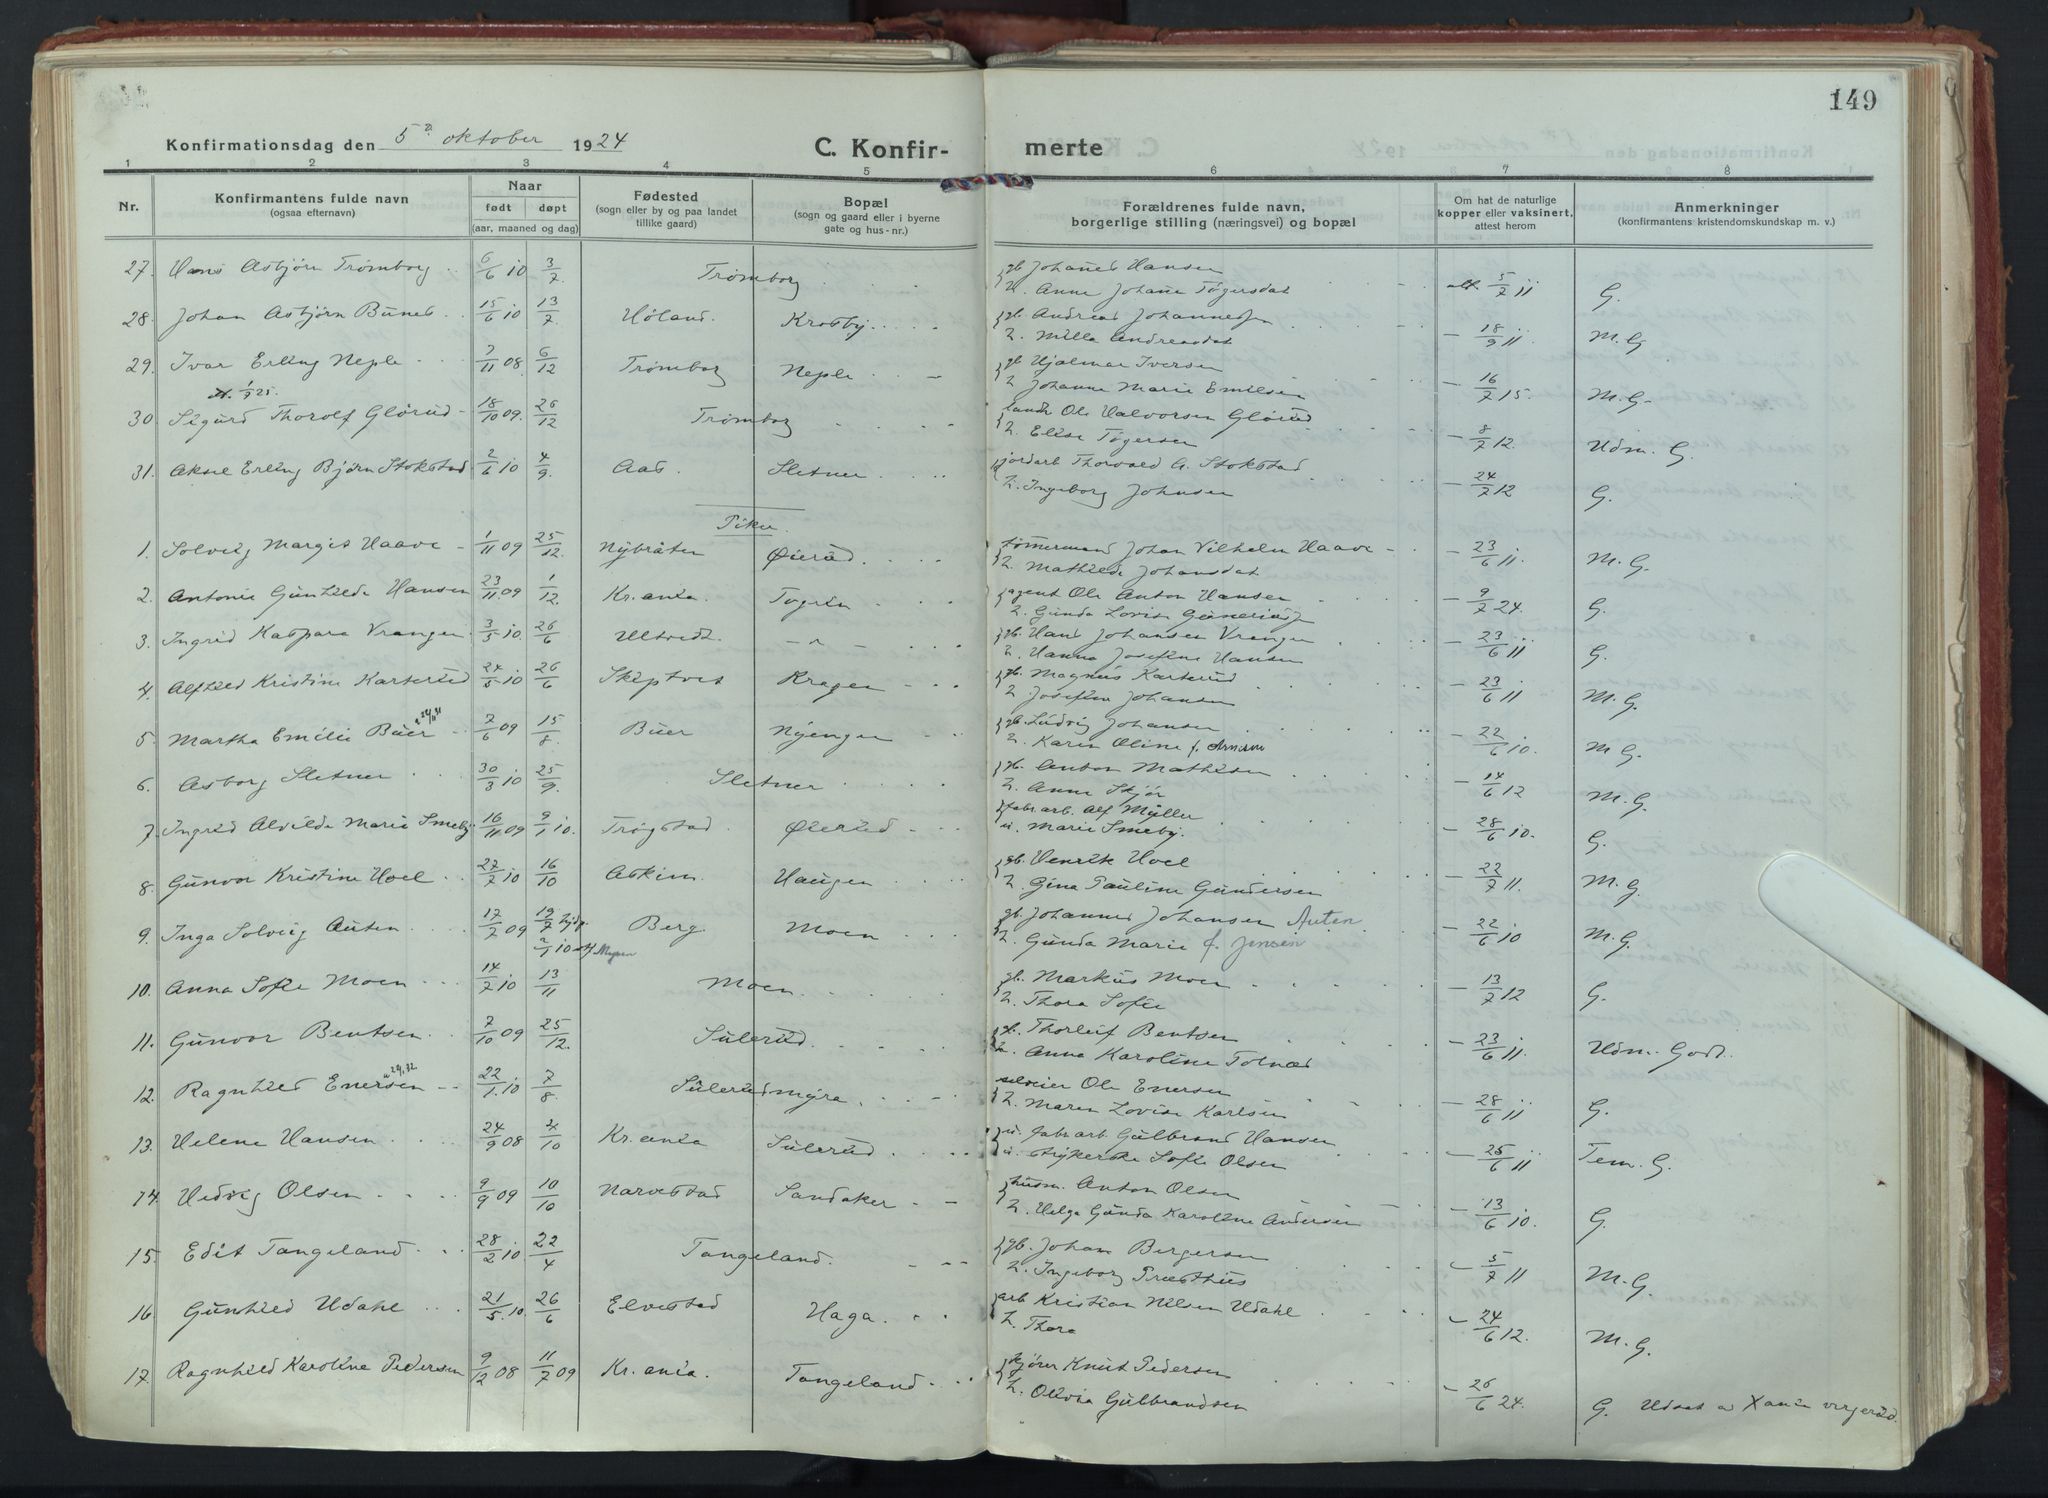 149
Konfirmationsdag den 5 oktober 1924
C. Konfir- merte
1 2 3 4 5 6 7 8
Nr.
Konfirmantens fulde navn
(ogsaa efternavn)
Naar
født døpt
(aar, maaned og dag)
Fødested
(sogn eller by og paa landet
tillike gaard)
Bopæl
(sogn og gaard eller i byerne
gate og hus-nr.)
Forældrenes fulde navn,
borgerlige stilling (næringsvei) og bopæl
Om hat de naturlige
kopper eller vaksinert,
attest herom
Anmerkninger
(konfirmantens kristendomskundskap m. v.)
27. Hans Asbjørn Trømborg 6/6 10 3/7 Trømborg gb. Johannes Hansen
h. Anne Johanne Tøgersdat att. 5/7 11 G.
28. Johan Asbjørn Bunes 15/6 10 13/7 Høland. Krosby gb. Andreas Johannessen
h. Milla Andreasdat 18/9 11 M. G.
29. Ivar Erling Neple 7/11 08 6/12 Trømborg Neple gb Hjalmar Iversen
h Johanne Marie Emilsen 16/7 15. M. G.
1/9 25.
30 Sigurd Thorolf Glørud 18/10 09. 26/12 Trømborg landh Ole Halvorsen Glørud
h. Elise Tøgersen 8/7 12. Udm. G.
31. Aksel Erling Bjørn Stokstad 2/6 10 4/9. Aas. Sletner jordarb Thorvald A. Stokstad
h. Ingeborg Johnsen 24/7 12 G.
Piker.
1. Solveig Margit Haave 1/11 09 25/12. Nybråten Øierud tømmermand Johan Vilhelm Haave
h. Mathilde Johansdat 23/6 11 M. G.
2. Antonie Gunhilde Hansen 23/11 09 1/12. Kr.ania. Togrin agent Ole Anton Hansen
h. Gunda Lovise 9/7 24. G.
3. Ingrid Kaspara Vrangen 3/5 10. 26/6 Ultvedt. - " - gb. Hans Johansen Vrangen
h. Hanna Josefine Hansen 23/6 11 G.
4. Alfhild Kristine Karterud 24/5 10 26/6 Skiptvet Kragen gb. Magnus Karterud
h Josefine Johansen 23/6 11 M. G.
5. Martha Emilie Buer 7/6 09 15/8. Buer Nyengen gb. Ludvig Johansen
h. Karen Oline f. Arnesen 22/6 10. M. G.
6. Asborg Sletner 30/3 10 25/9. Sletner gb. Anton Mathisen
h. Anne Skjør 14/6 12 M. G.
7. Ingrid Alvilde Marie Smeby 16/11 09 9/1 10. Trøgstad Øierud fabrarb. Alf Müller
u. Marie Smeby. 28/6 10. G.
8. Gunvor Kristine Hoel 27/7 10 16/10 Askim. Haugen gb. Henrik Hoel
h. Gina Pauline Gundersen 22/7 11. M. G.
9. Inga Solveig Auten 17/7 09 19/7 Hjdp. Berg. Moen gb. Johannes Johansen Auten
2/1 10 Mysen h. Gunda Marie f. Jensen 22/6 10 M. G.
10. Anna Sofie Moen 14/7 10 13/11 Moen. gb. Markus Moen
h. Thora Sofie 13/7 12 G.
11. Gunvor Bentsen 7/10 09 25/12. Sulerud gb. Thorleif Bentsen
h. Anna Karoline Tolnæs 23/6 11. Udm. Godt.
12. Ragnhild Enersen 22/1. 10 7/8 Sulerudmyra selveier Ole Enersen
h. Maren Lovise Karlsen 28/6 11 G.
13. Helene Hansen 24/9 08 4/10 Kr.ania Sulerud u. fabrarb Gulbrand Hansen
u. strykerske Sofie Olsen 25/6 11 Tem. G.
14. Hedvig Olsen 9/9 09 10/10 Narvestad Sandaker husm. Anton Olsen
h. Helga Gunda Karoline Andersen 13/6 10. G.
15. Edit Tangeland 28/2 10. 22/4 Tangeland. gb. Johan Bergersen
h. Ingeborg Præsthus 5/7 11 M. G.
16 Gunhild Udahl 21/5. 10. 26/6 Elvestad Haga arb Kristian Nilsen Udahl
h. Thora 24/6 12. M. G.
17. Ragnhild Karoline Pedersen 9/12 08 11/7 09 Kr.ania. Tangeland kjører Knut Pedersen
h. Olivia Gulbrandsen 26/6 24. G. Udsat a Xania vergeråd.